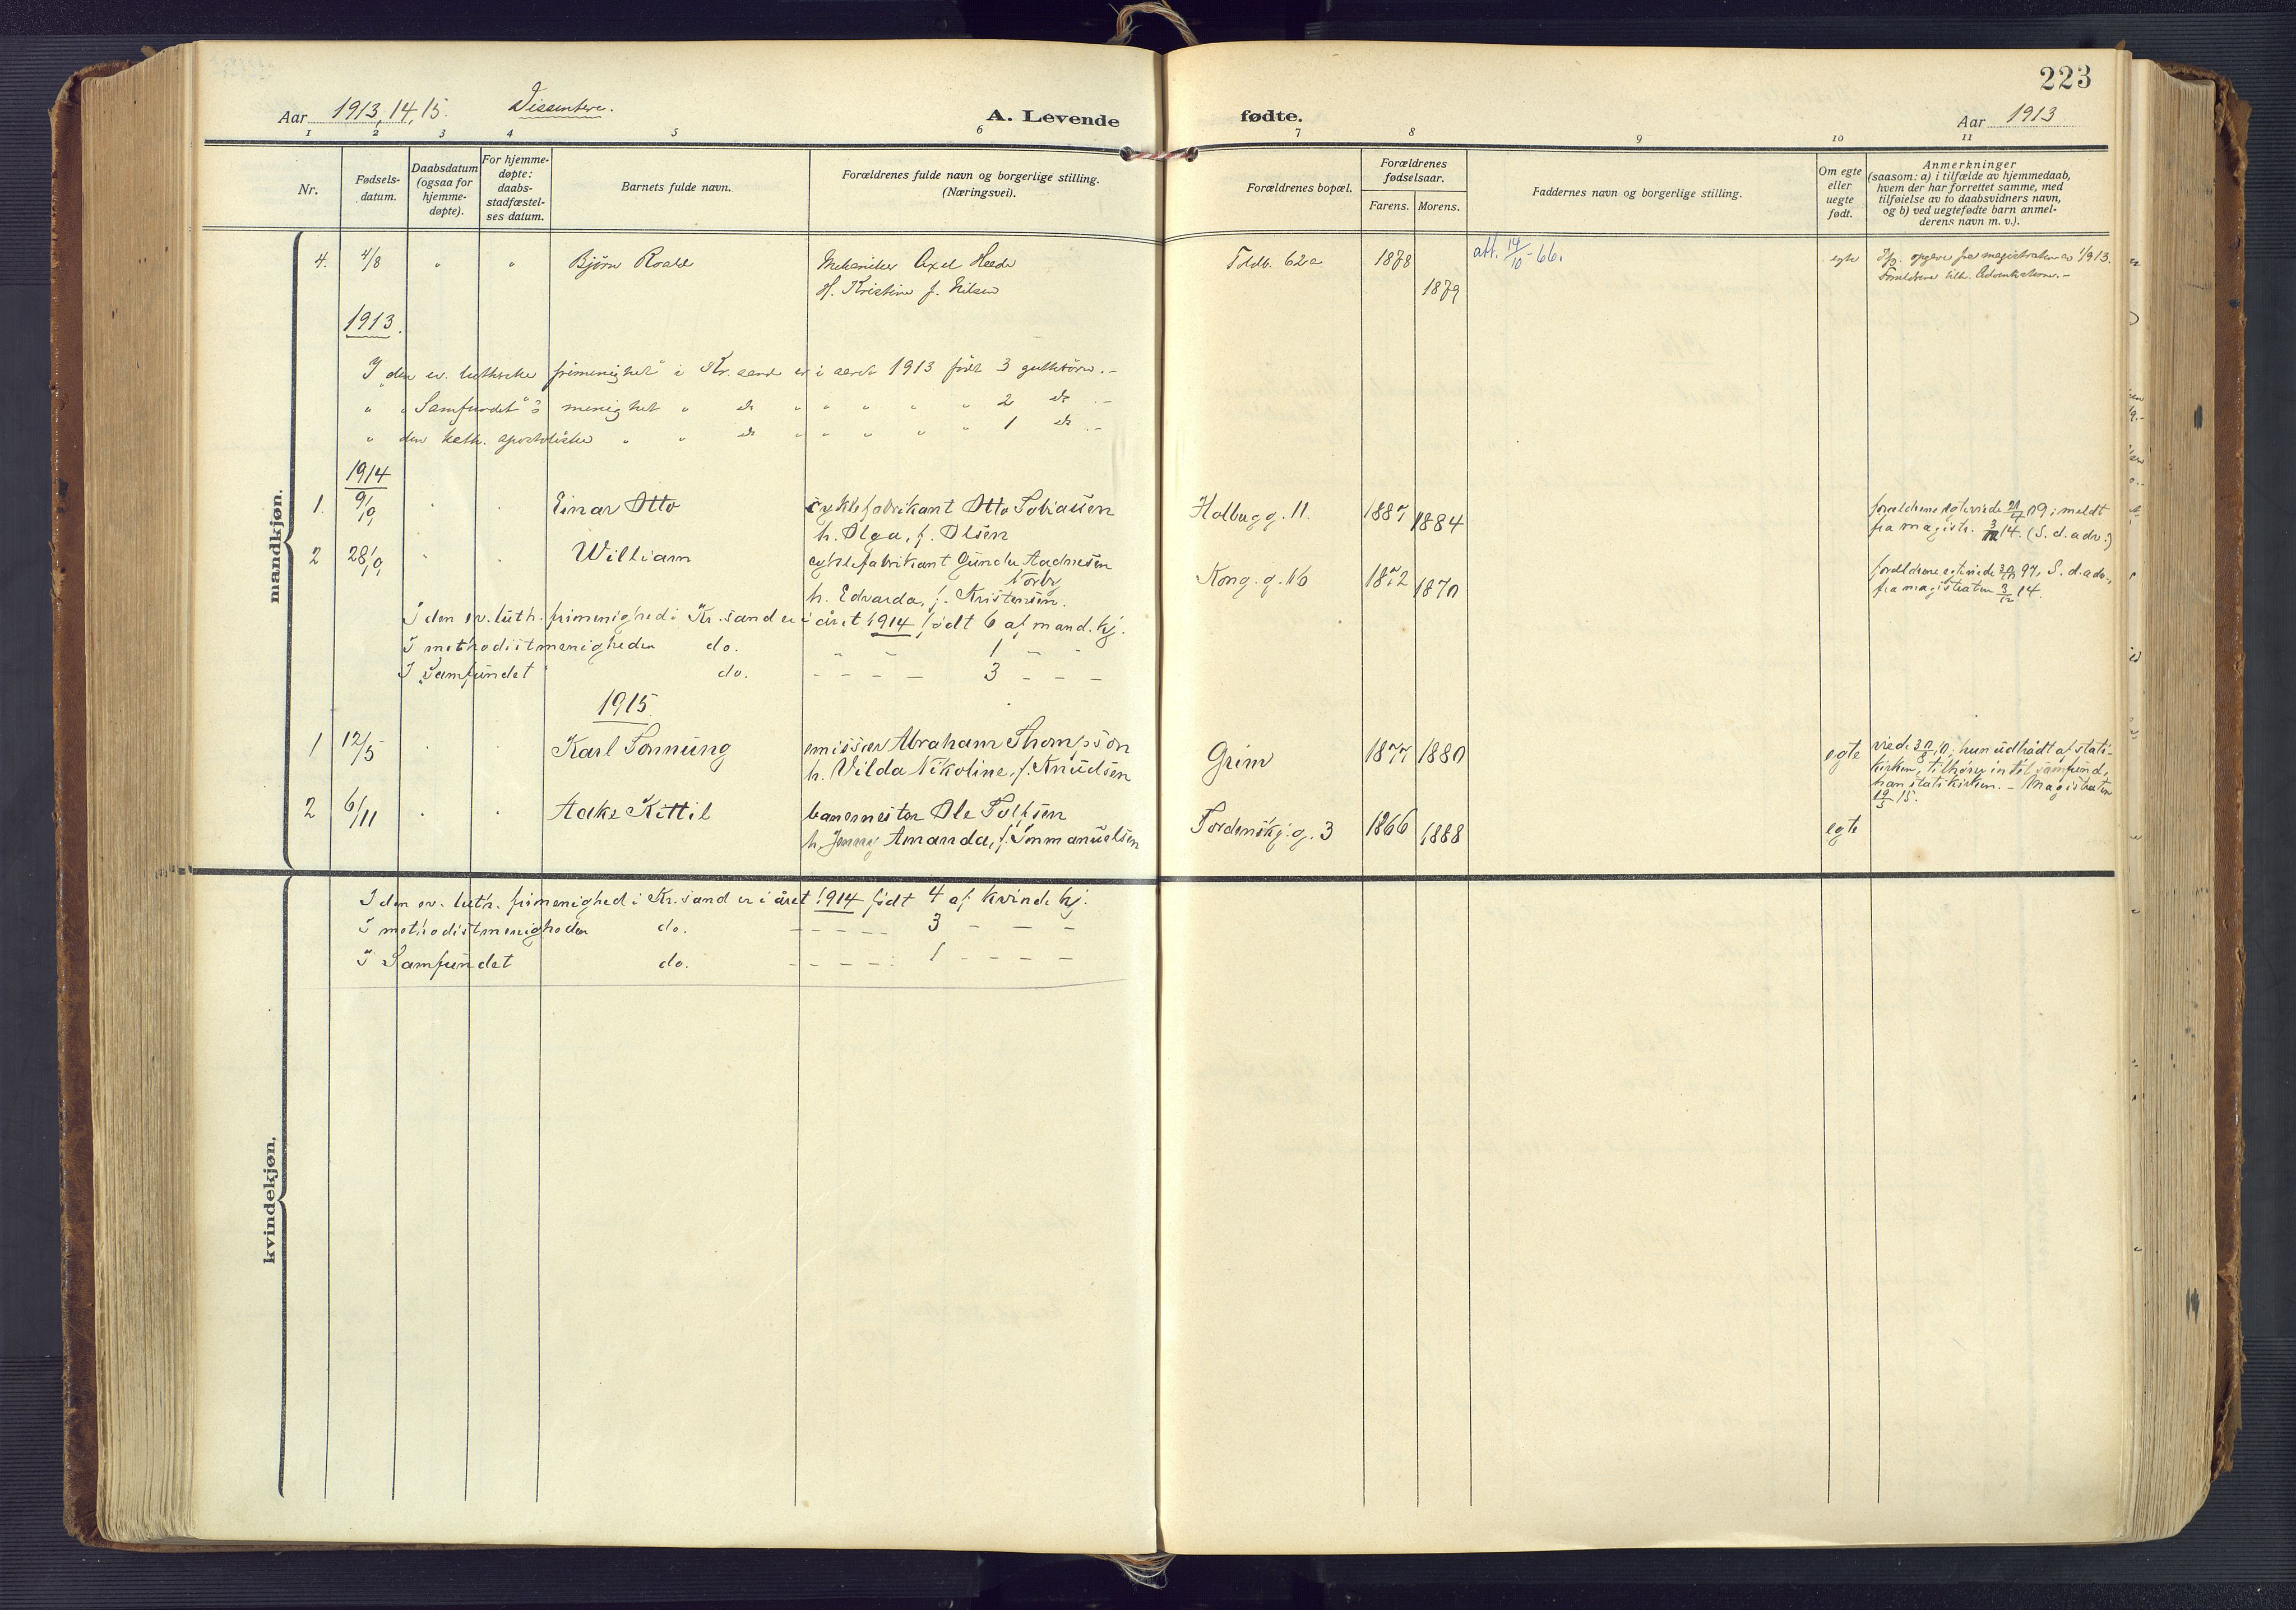 223
Aar 1913, 14, 15. Dissentere. A. Levende fødte. Aar 1913
1 2 3 4 5 6 7 8 9 10 11
Nr.
Fødsels-
datum.
Daabsdatum
(ogsaa for
hjemme-
døpte).
For hjemme-
døpte:
daabs-
stadfæstel-
ses datum.
Barnets fulde navn.
Forældrenes fulde navn og borgerlige stilling.
(Næringsvei).
Forældrenes bopæl.
Forældrenes
fødselsaar.
Farens. Morens.
Faddernes navn og borgerlige stilling.
Om egte
eller
uegte
født.
Anmerkninger
(saasom: a) i tilfælde av hjemmedaab,
hvem der har forrettet samme, med
tilføielse av to daabsvidners navn,
og b) ved uegtefødte barn anmel-
derens navn m. v.).
mandkjøn.
4. 4/8 " " Bjørn Roald Mekaniker Axel Toldb. 62a 1878 att. 14/10-66. egte opgave fra magistraten
H. Kristine f. Nilsen 1879
1913.
I den ev. lutherske frimenighet i Kr.sand er i aaret 1913 født 3 guttebørn.-
" "Samfundet"s menighet " do " " " " " 2 do .-
" den kath. apostoliske " " do " " " " " 1 do .-
1914
1. 9/9 Einar Otto cyklefabrikant Otto Tobiassen Holbugg. 11. 1887 1884 forældrene egteviede 09; meldt
h. Olga, f. Olsen fra magistr. 3/12 14. (S. d. adv.)
2 28/9 William cyklefabrikant Gunder Aadnesen Kong. g. 16 1872 1870 forældrene egteviede 97, S. d. adv.,
Norby fra magistraten 3/12 14.
h. Edvarda, f. Kristensen.
I den ev. luth. frimenighed i Kr.sand er i året 1914 født 6 af mand. kj.
I methodistmenigheden do. - - 1 - -
I Samfundet do. - - - - 3 - - -
1915
1 12/5 Karl Tonnung emissær Abraham Thompson Grim 1877 1880 egte viede hun udtrådt af stats-
h. Vilda Nikoline, f. Knudsen kirken, tilhører samfund,
han statskirken. - Magistraten
19/5 15.
2 6/11 Aake Kittil banemester Ole Tordenskj. g. 3 1866 1888 egte
h. Jenny Amanda, f. Immanuelsen
kvindekjøn.
I den ev. luth. frimenighed i Kr.sand er i året 1914 født 4 af kvinde kj.
I methodistmenigheden do. - - - - - 3 - - - -
I Samfundet do. - - - - - 1 - - - -